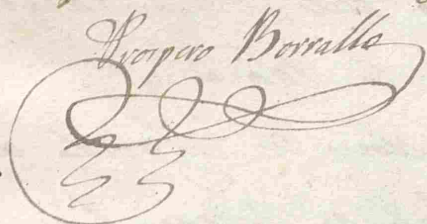 Prospero Borrallo